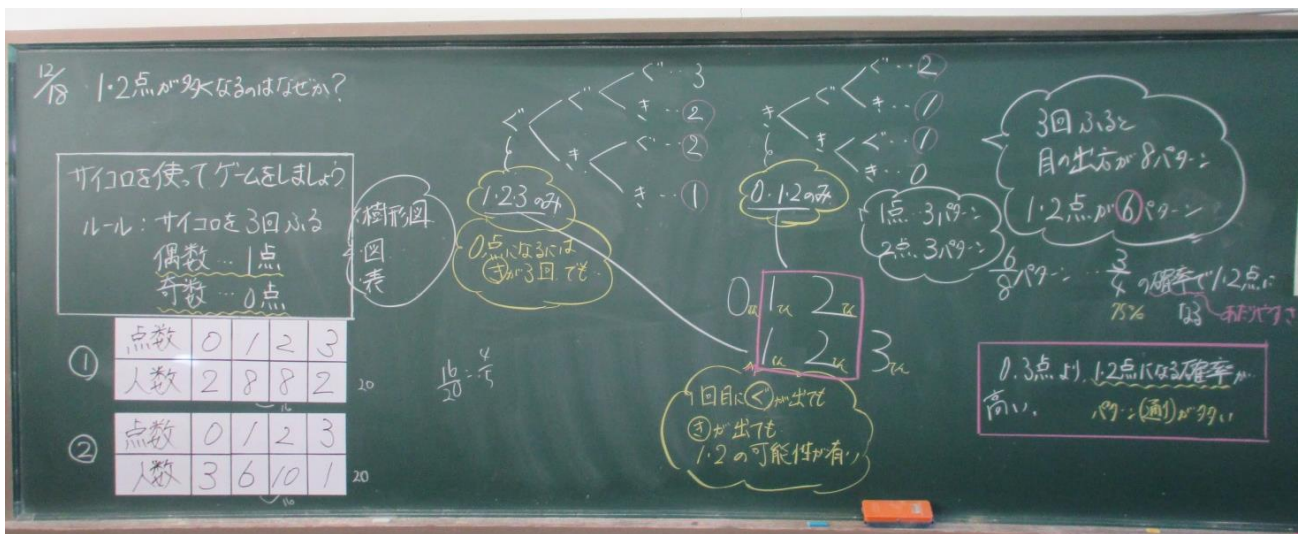 12/18 1・2点が多くなるのはなぜか?
サイコロを使ってゲームをしましょう
ルール:サイコロを3回ふる
偶数…1点
奇数…0点
樹形図
図
表
① 点数 0 1 2 3
人数 2 8 8 2 20
16
② 点数 0 1 2 3
人数 3 6 10 1 20
16
16/20=4/5
ぐ ぐ ぐ‥3
き‥②
き ぐ‥②
き‥①
1・2・3のみ
0点になるには
きが3回でも‥
き ぐ ぐ‥②
き‥①
き ぐ‥①
き‥0
0・1・2のみ
1点‥3パターン
2点‥3パターン
0 1 2
1 2 3
1回目にぐが出ても
きが出ても
1・2の可能性が有い
3回ふると
目の出方が8パターン
1・2点が⑥パターン
6/8パターン…3/4の確率で1・2点に
75% なる あたりやすさ
0.3点より、1.2点になる確率が
高い、 パターン(通り)が多い